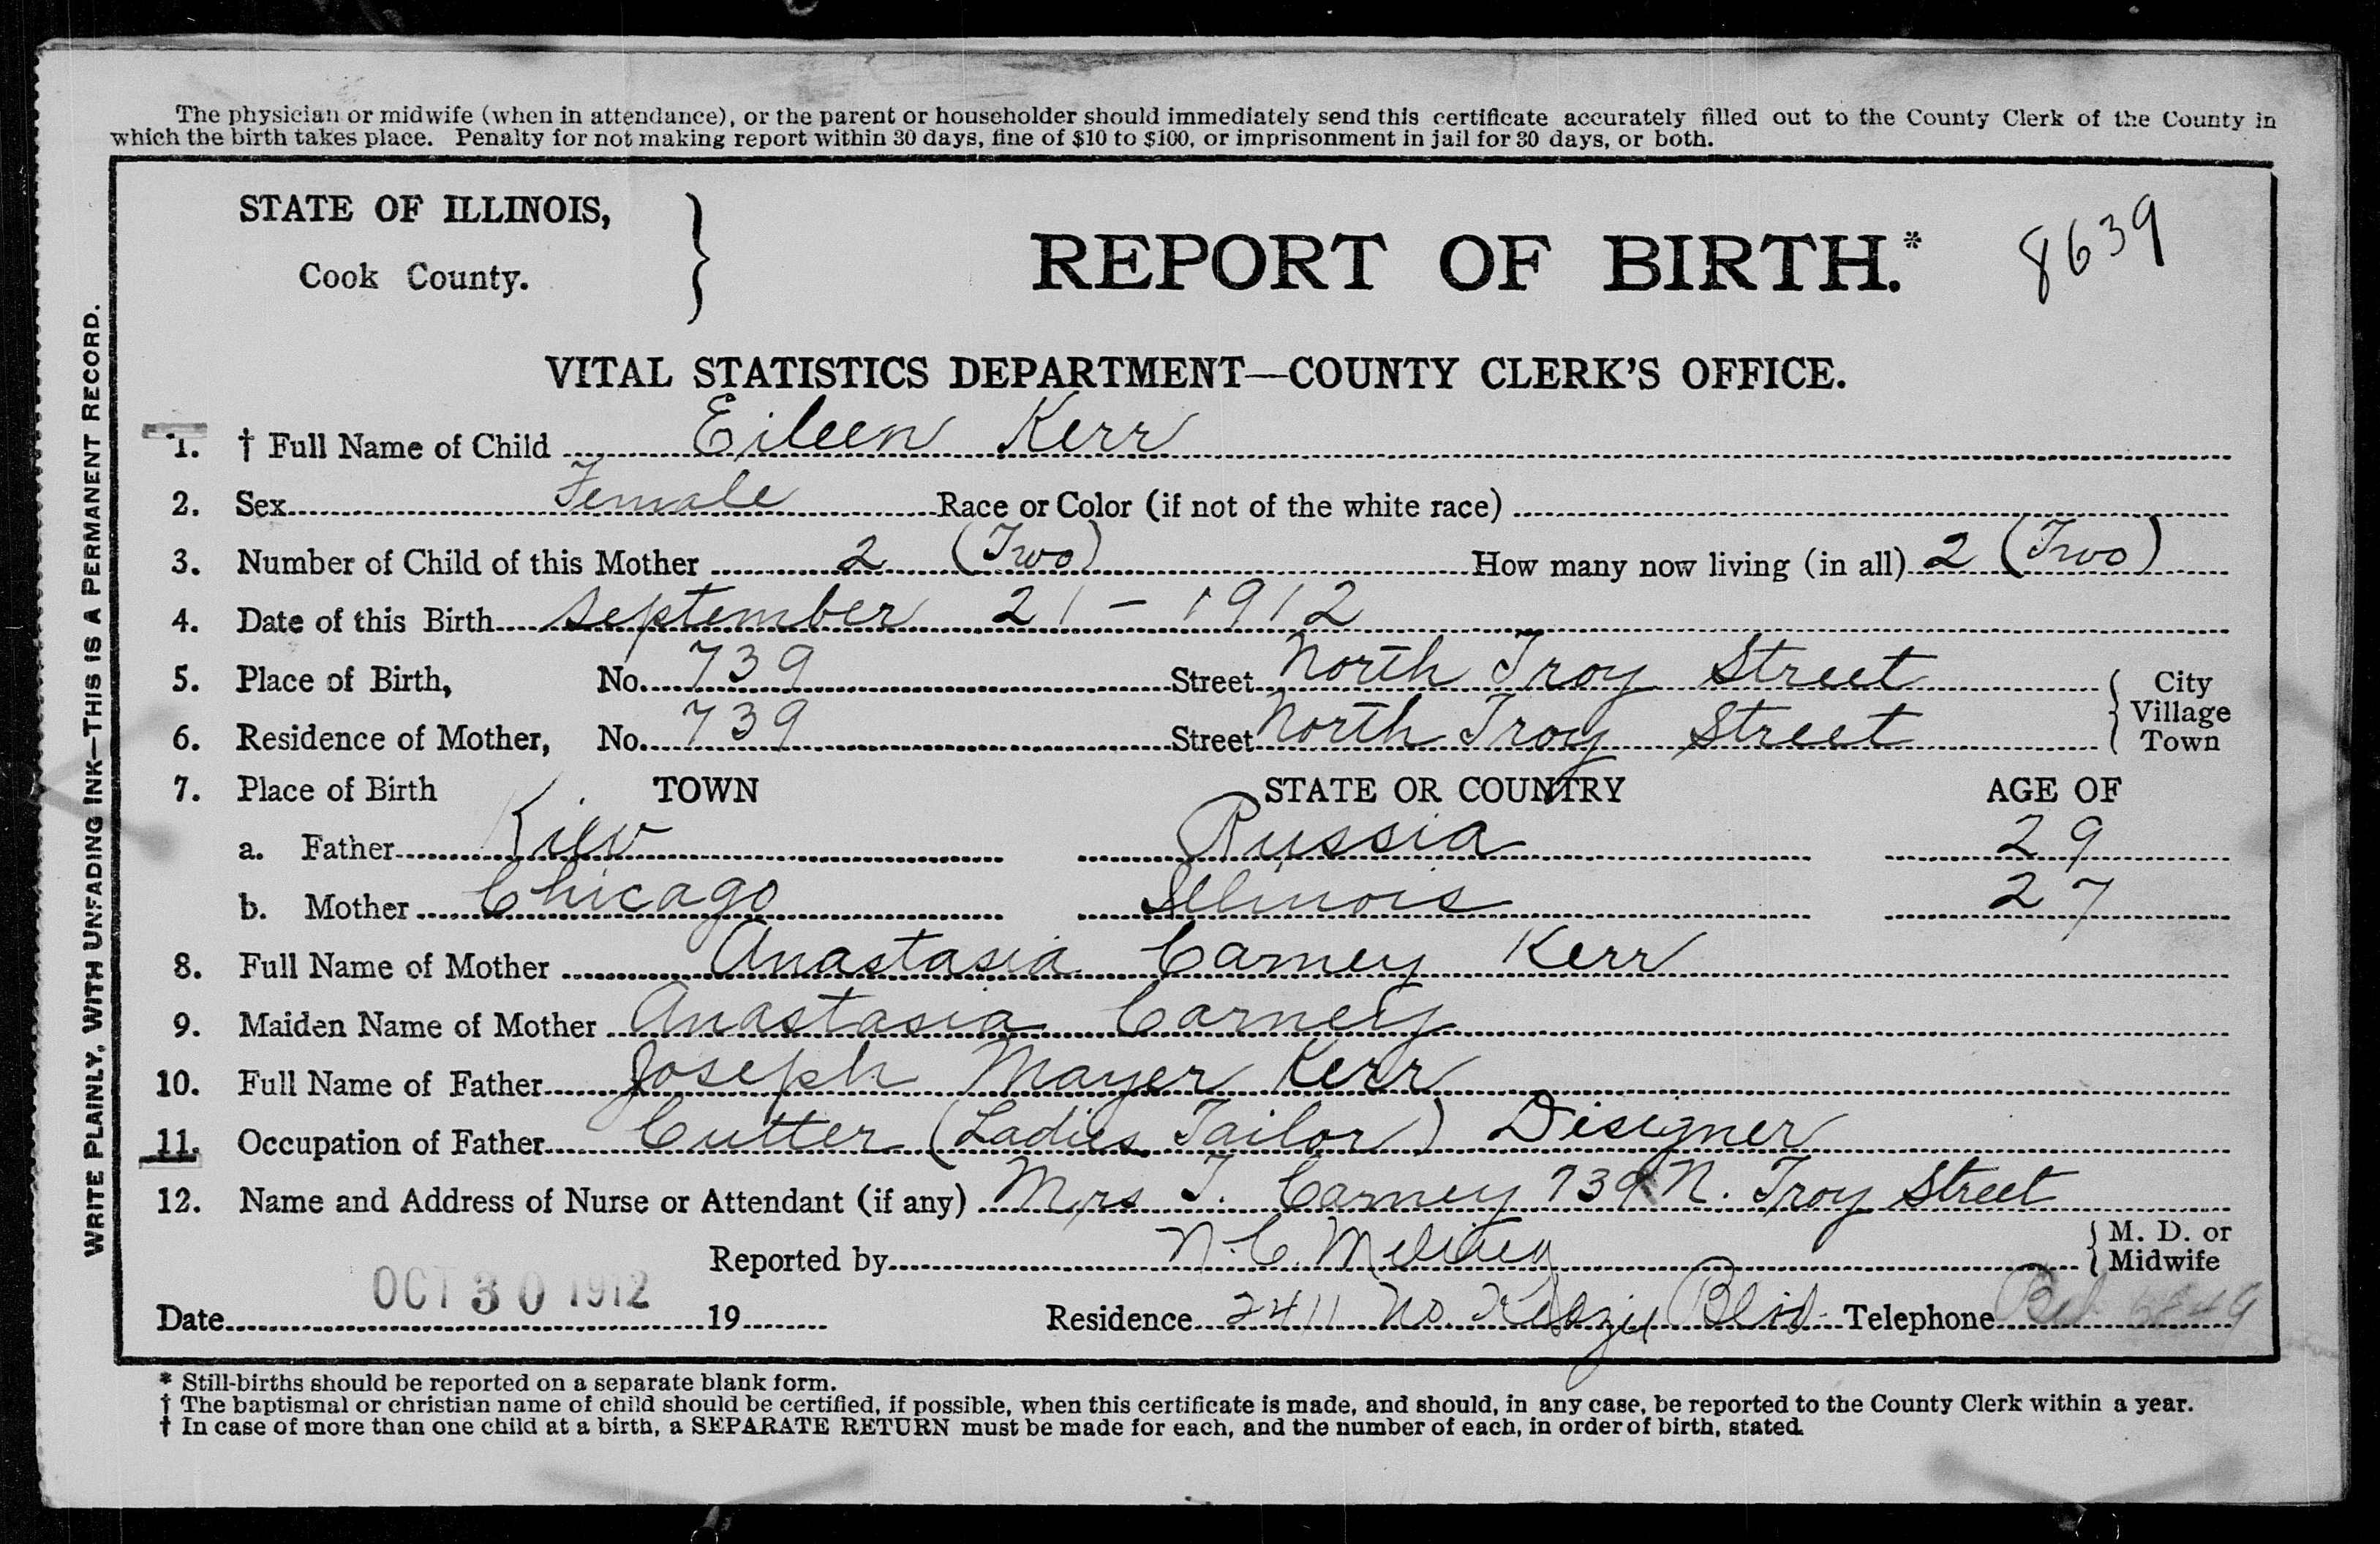 The physician or midwife (when in attendance), or the parent or householder should immediately send this certificate accurately filled out to the County Clerk of the County in
which the birth takes place. Penalty for not making report within 30 days, fine of $10 to $100, or imprisonment in jail for 30 days, or both.
WRITE PLAINLY, WITH UNFADING INK—THIS IS A PERMANENT RECORD.
STATE OF ILLINOIS,
Cook County.
REPORT OF BIRTH.* 8639
VITAL STATISTICS DEPARTMENT—COUNTY CLERK'S OFFICE.
1. † Full Name of Child Eileen Kerr
2. Sex Female Race or Color (if not of the white race)
3. Number of Child of this Mother 2 (Two) How many now living (in all) 2 (Two)
4. Date of this Birth September 21 - 1912
5. Place of Birth, No. 739 Street North Troy Street City
Village
6. Residence of Mother, No. 739 Street North Troy Street Town
7. Place of Birth TOWN STATE OR COUNTRY AGE OF
a. Father Kiev Russia 29
b. Mother Chicago Illinois 27
8. Full Name of Mother Anastasia Carney Kerr
9. Maiden Name of Mother Anastasia Carney
10. Full Name of Father Joseph Mayer Kerr
11. Occupation of Father Cutter (Ladies Tailor) Designer
12. Name and Address of Nurse or Attendant (if any) Mrs T. Carney 739 N. Troy Street
Reported by N.C. M. D. or
Midwife
Date OCT 30 1912 19 Residence 2411 No. Kedzie Blvd. Telephone
* Still-births should be reported on a separate blank form.
† The baptismal or christian name of child should be certified, if possible, when this certificate is made, and should, in any case, be reported to the County Clerk within a year.
† In case of more than one child at a birth, a SEPARATE RETURN must be made for each, and the number of each, in order of birth, stated.